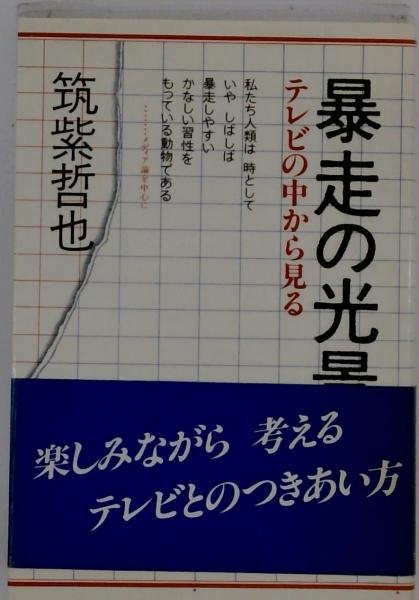 暴走の光景
テレビの中から見る
私たち人類は 時として
いや しばしば
暴走しやすい
かなしい習性を
もっている動物である
………メディア論を中心に
筑紫哲也
楽しみながら 考える
テレビとのつきあい方